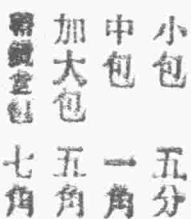 小包 五分
中包 一角
加大包 五角
包 七角